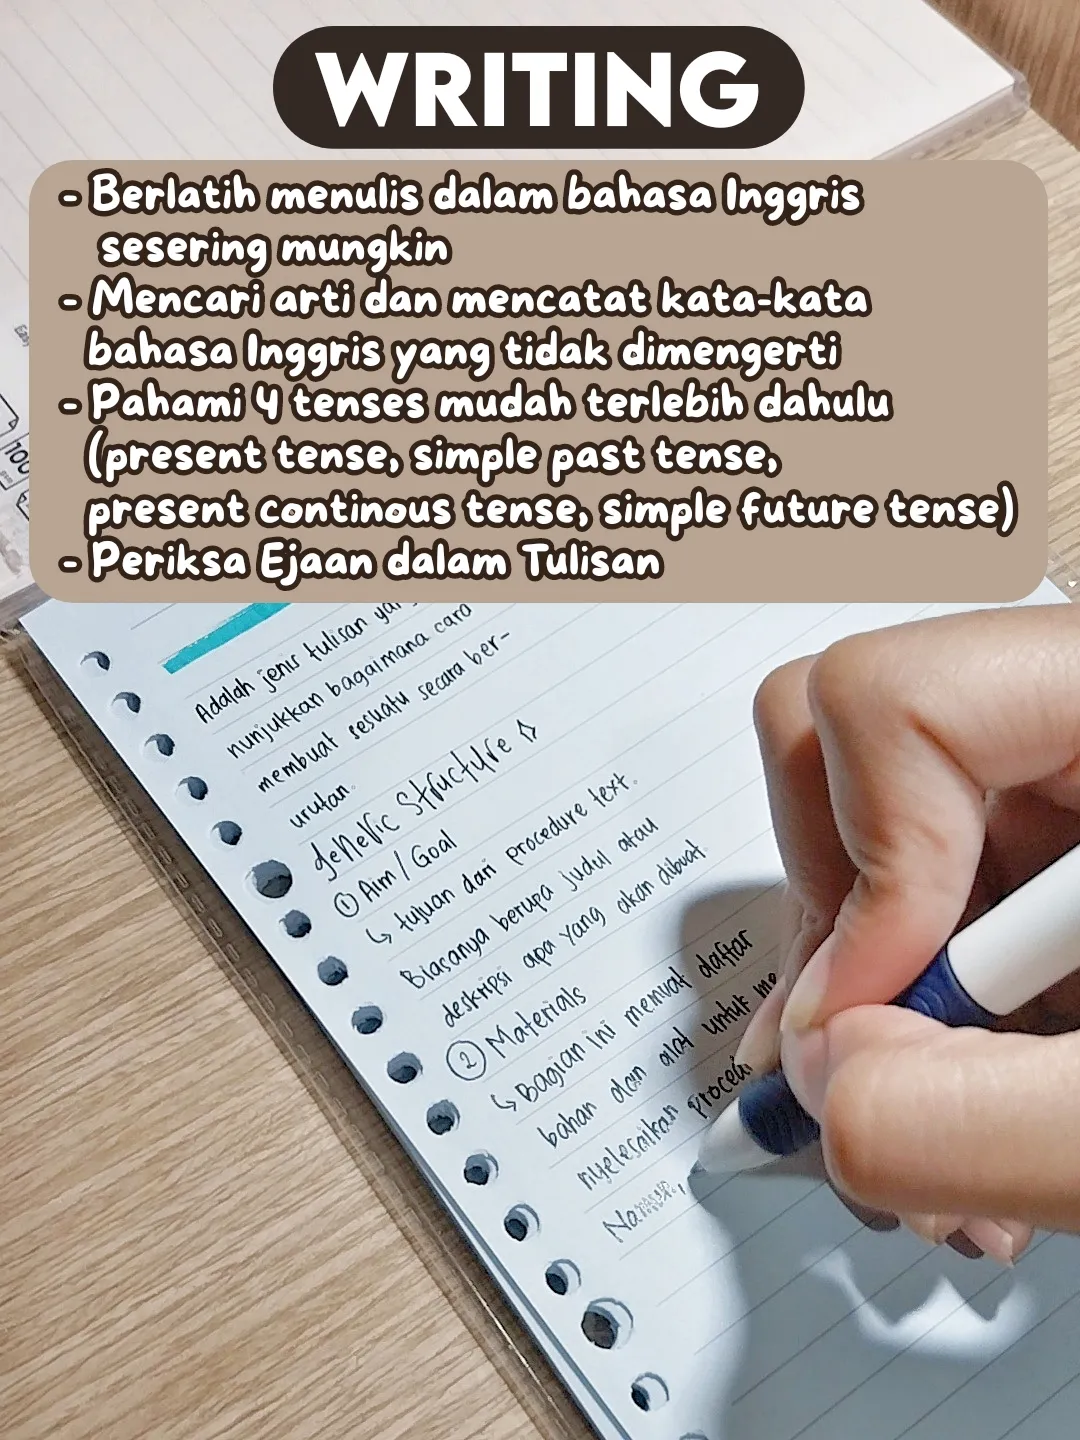 WRITING
- Berlatih menulis dalam bahasa Inggris
sesering mungkin
- Mencari arti dan mencatat kata-kata
bahasa Inggris yang tidak dimengerti
- Pahami 4 tenses mudah terlebih dahulu
(present tense, simple past tense,
present continous tense, simple future tense)
- Periksa Ejaan dalam Tulisan
100
Adalah jenis tulisan
nunjukkan bagaimana cara
membuat sesuatu secara ber-
urutan.
Generic Structure
① Aim / Goal
↳ tujuan dari procedure text.
Biasanya berupa judul atau
deskripsi apa yang akan dibuat.
② Materials
↳ Bagian ini memuat daftar
bahan dan alat untuk me
nyelesaikan